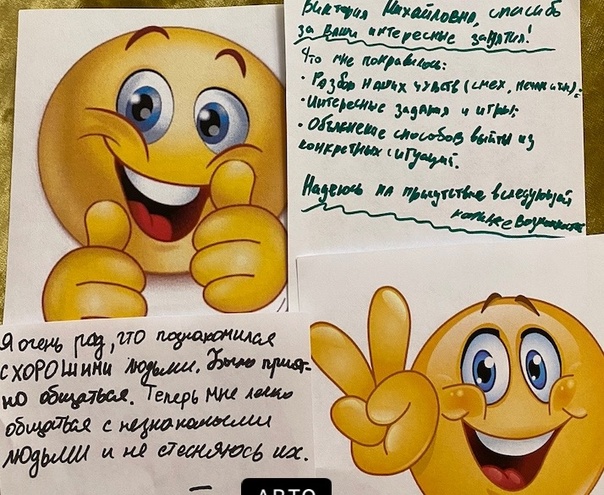 Виктория Михайловна, спасибо
за Ваши интересные занятия!
Что мне понравилось:
• Разбор наших чувств (смех,
• Интересные задания и игры;
• Объяснение способов выйти из
конкретных ситуаций.
Надеюсь на присутствие в следующей
Я очень рад, что познакомился
с ХОРОШИМИ людьми. Было прият-
но общаться. Теперь мне легко
общаться с незнакомыми
людьми и не стесняюсь их.
АВТО